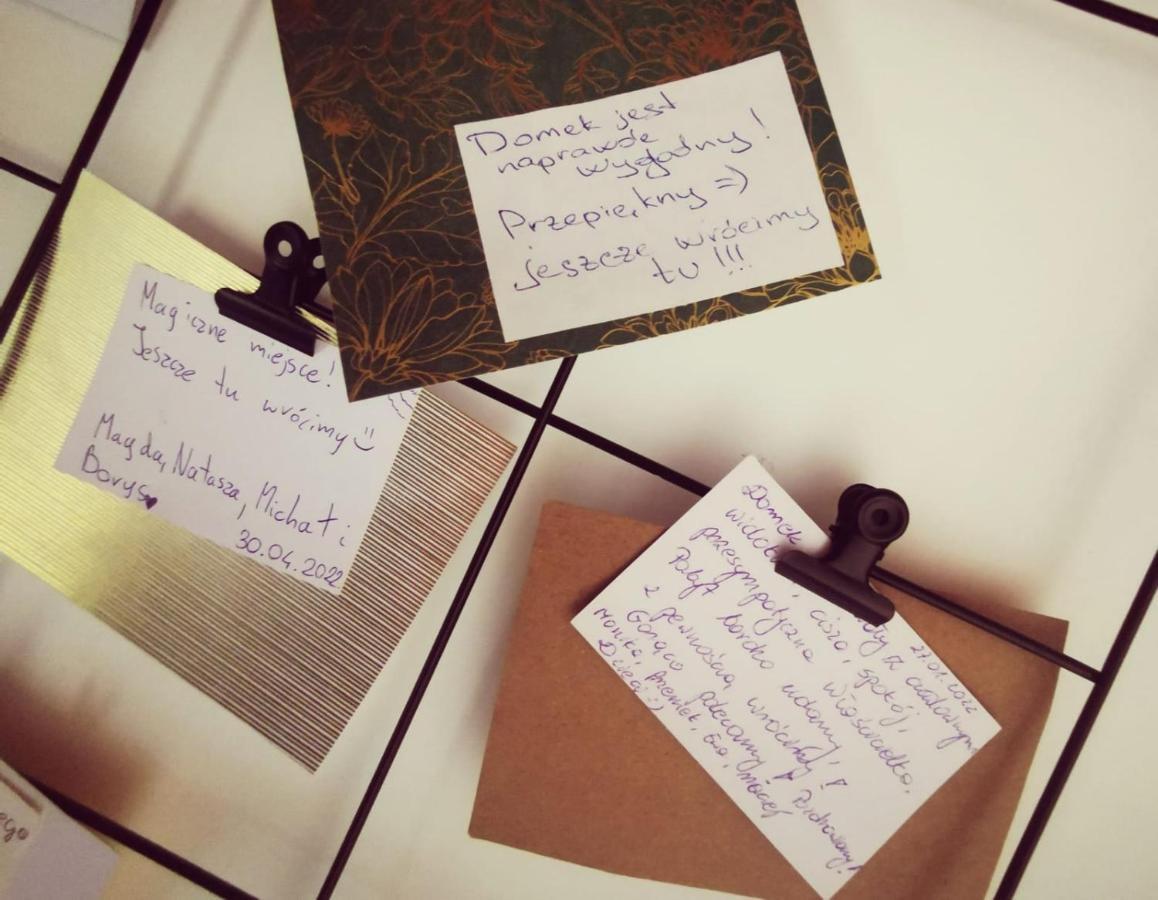 Domek jest
naprawdę
wygodny!
Przepiękny =)
jeszcze wrócimy
tu!!!
Magiczne miejsce!
Jeszcze tu wrócimy
Magda, Natasza, Michał i
Borys♥
30.04.2022
27.01.2022
Domek z cudownym
widokiem, cisza, spokój,
przesympatyczna właścicielka.
Pobyt bardzo udany!
z pewnością wrócimy!
Gorąco polecamy i Pozdrawiamy!
Monika, Przemek, Ewa, Maciej
Dzieci :)
ego